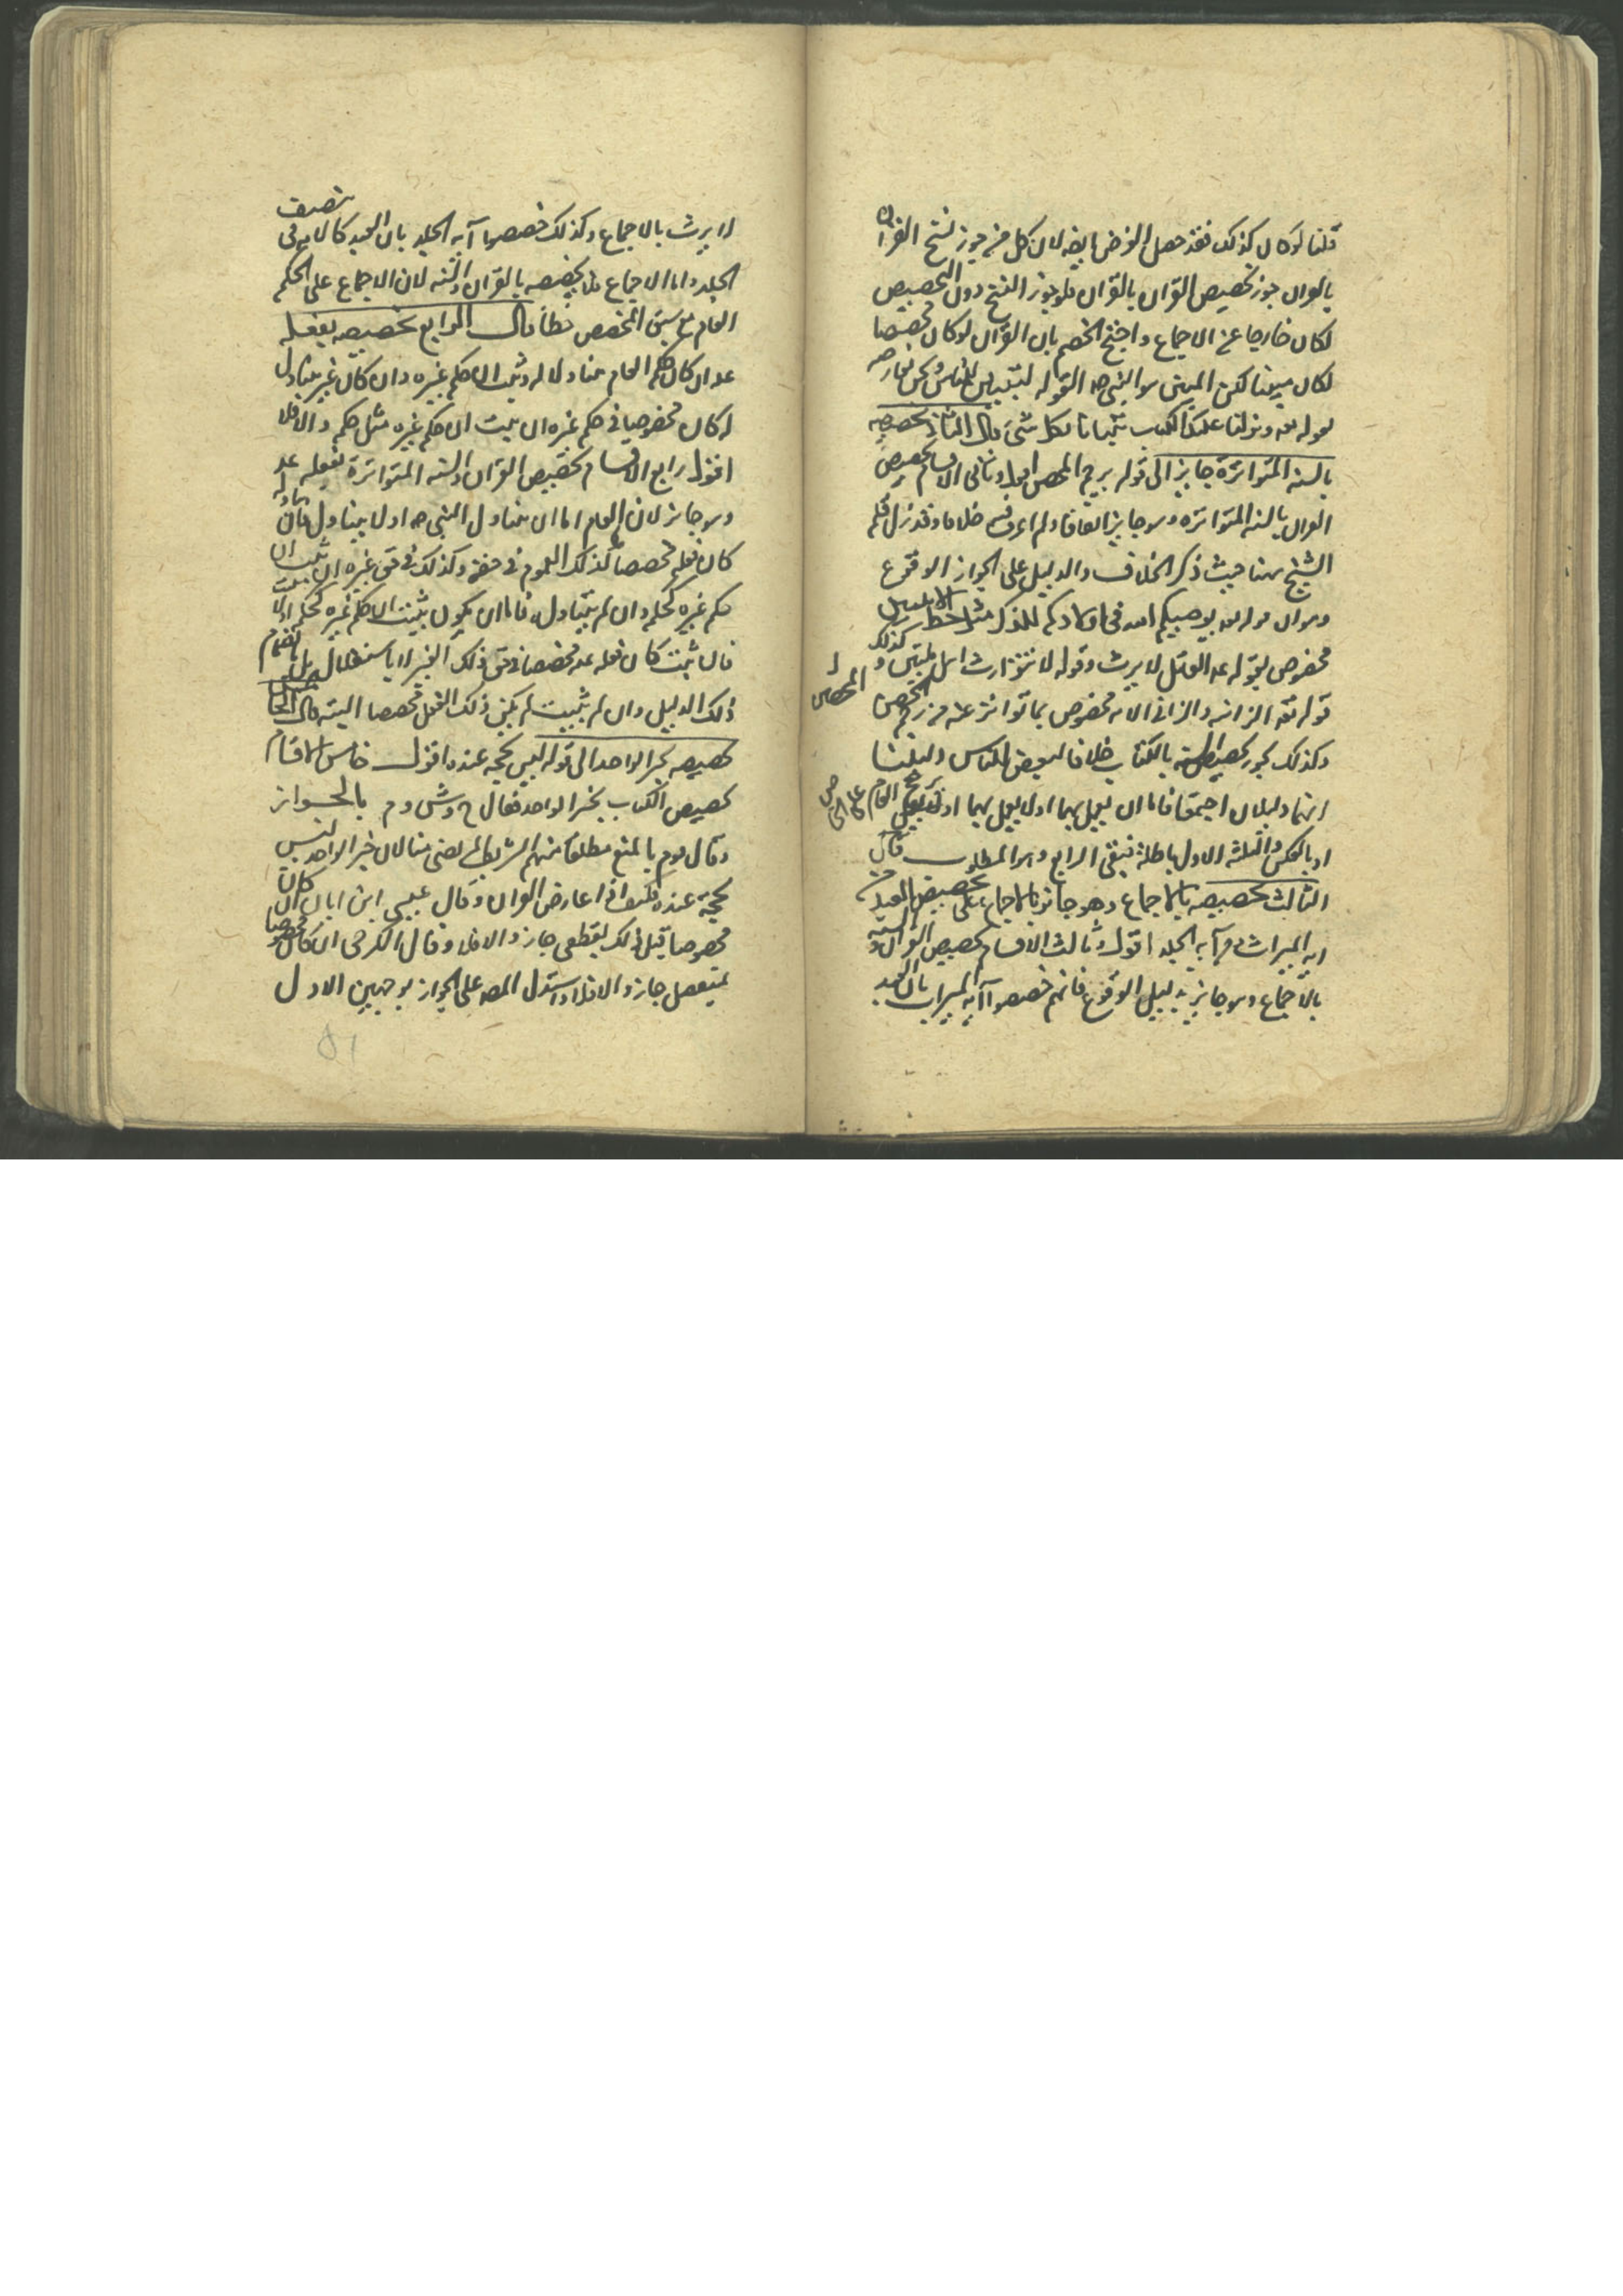 قلنا لو كان كذلك فقد حصل الغرض ايضه لان كل من جوز نسخ القرآن
بالقران جوز تخصيص القران بالقران فلو جوز النسخ دون التخصيص
لكان خارجا عن الاجماع واحتج الخصم بان القرآن لو كان مخصصا
لكان مبينا لكن المبين هو النبي صه لقوله لتبين للناس ونحن نعارضه
بقوله تعه ونزلنا عليك الكتاب تبيانا لكل شيء قال الثاني تخصيصه
بالسنه المتواترة جايز الى قوله برجم المحصن اقول وثاني الاقسام تخصيص
القران بالسنه المتواتره وهو جايز اتفاقا ولم اعرف فيه خلافا وقد زل قلم
الشيخ هنا حيث ذكر الخلاف والدليل على الجواز الوقوع
وهو ان قوله تعه يوصيكم الله في اولادكم للذكر مثل حظ الانثيين
مخصوص بقوله عه القاتل لا يرث وقوله لا نتوارث اهل ملتين وكذلك
قوله تعه الزانيه والزاني الايه مخصوص بما تواتر عنه من رجم المحصن
المحصن
وكذلك يجوز تخصيص السنه بالكتاب خلافا لبعض الناس ولدليلنا
انهما دليلان اجتمعا فاما ان يعمل بهما اولا يعمل بهما او يعمل العام على الخاص
او بالعكس والثلثه الاول باطلة فبقى الرابع وهو المطلوب قال
الثالث تخصيصه بالاجماع وهو جائز للاجماع على تخصيص العبد من
ايه الميراث ومن آية الجلد اقول وثالث الاقسام تخصيص القران والسنه
بالاجماع وهو جايز بدليل الوقوع فانهم خصصوا آية الميراث بان العبد
لا يرث بالاجماع وكذلك خصصوا آية الجلد بان العبد كالامه في تنصيف
الجلد واما الاجماع فلا يجوز تخصيصه بالقران والسنه لان الاجماع على الحكم
العام مع سبق المخصص خطأ قال الرابع تخصيصه بفعله
عه ان كان حكم العام متناولا له وثبت ان حكم غيره وان كان غير متناول
له كان مخصوصا في حكم غيره ان ثبت ان حكم غيره مثل حكمه والا فلا
اقول رابع الاقسام تخصيص القران والسنه المتواترة بفعله عه
وهو جائز لان العام اما ان يتناول النبي صه اولا يتناوله فان تناوله
كان فعله مخصصا لذلك العموم في حقه وكذلك في حق غيره ان ثبت ان
حكم غيره كحكمه وان لم يتناوله فاما ان يكون يثبت ان حكم غيره كحكمه اولا
فان ثبت كان فعله عه مخصصا في حق ذلك الغير لا باستقلاله بل بانضمام
ذلك الدليل وان لم يثبت لم يكن ذلك الفعل مخصصا البته قال الخامس
تخصيصه بخبر الواحد الى قوله ليس بحجه عنده اقول خامس الاقسام
تخصيص الكتاب بخبر الواحد فقال ح وش وم بالجواز
وقال قوم بالمنع مطلقا منهم الشريف المرتضى منا لان خبر الواحد ليس
بحجة عنده فكيف اذا عارض القران وقال عيسى ابن ابان ان كان
مخصوصا قبل ذلك بقطعي جاز والا فلا وقال الكرخي ان كان مخصوصا
بمنفصل جاز والا فلا واستدل المصه على الجواز بوجهين الاول